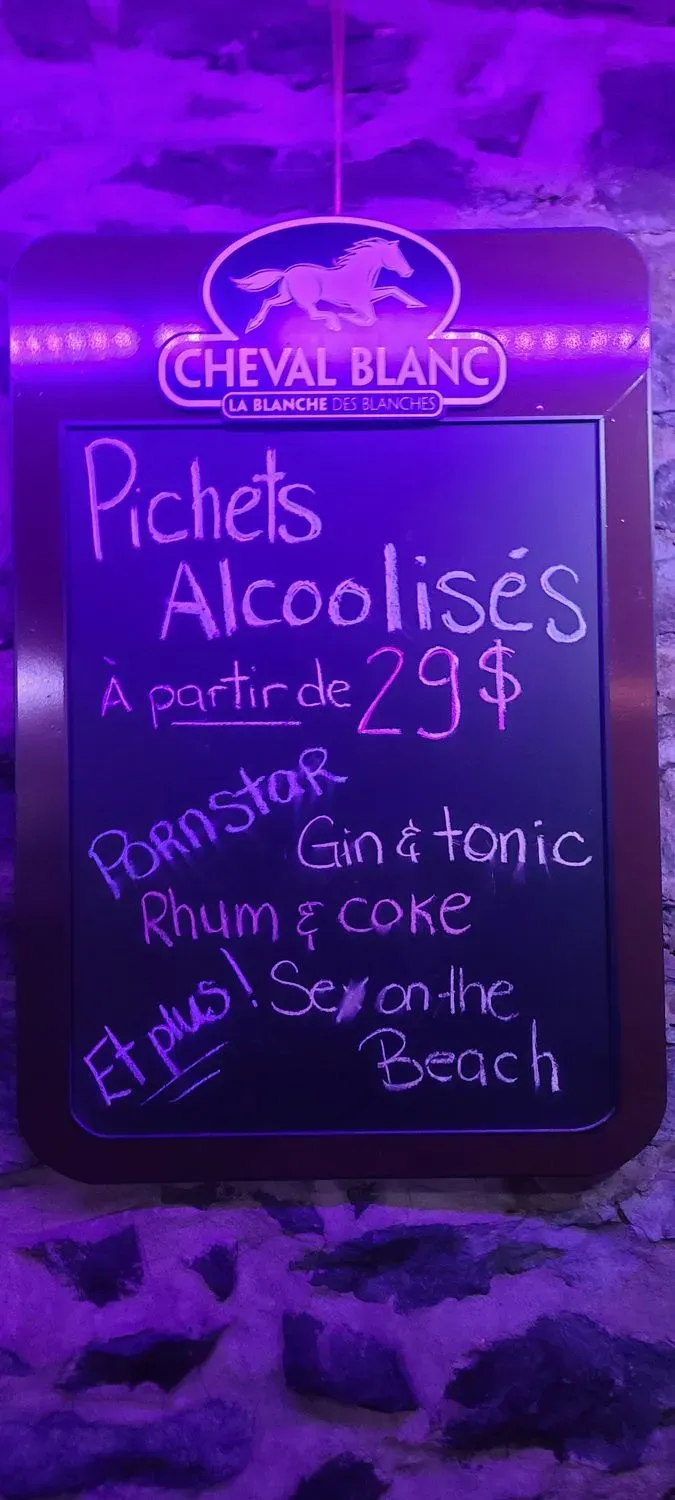 CHEVAL BLANC
LA BLANCHE DES BLANCHES
Pichets
Alcoolisés
À partir de 29$
PORNSTAR
Gin & tonic
Rhum & coke
Et plus!
Sex on the
Beach